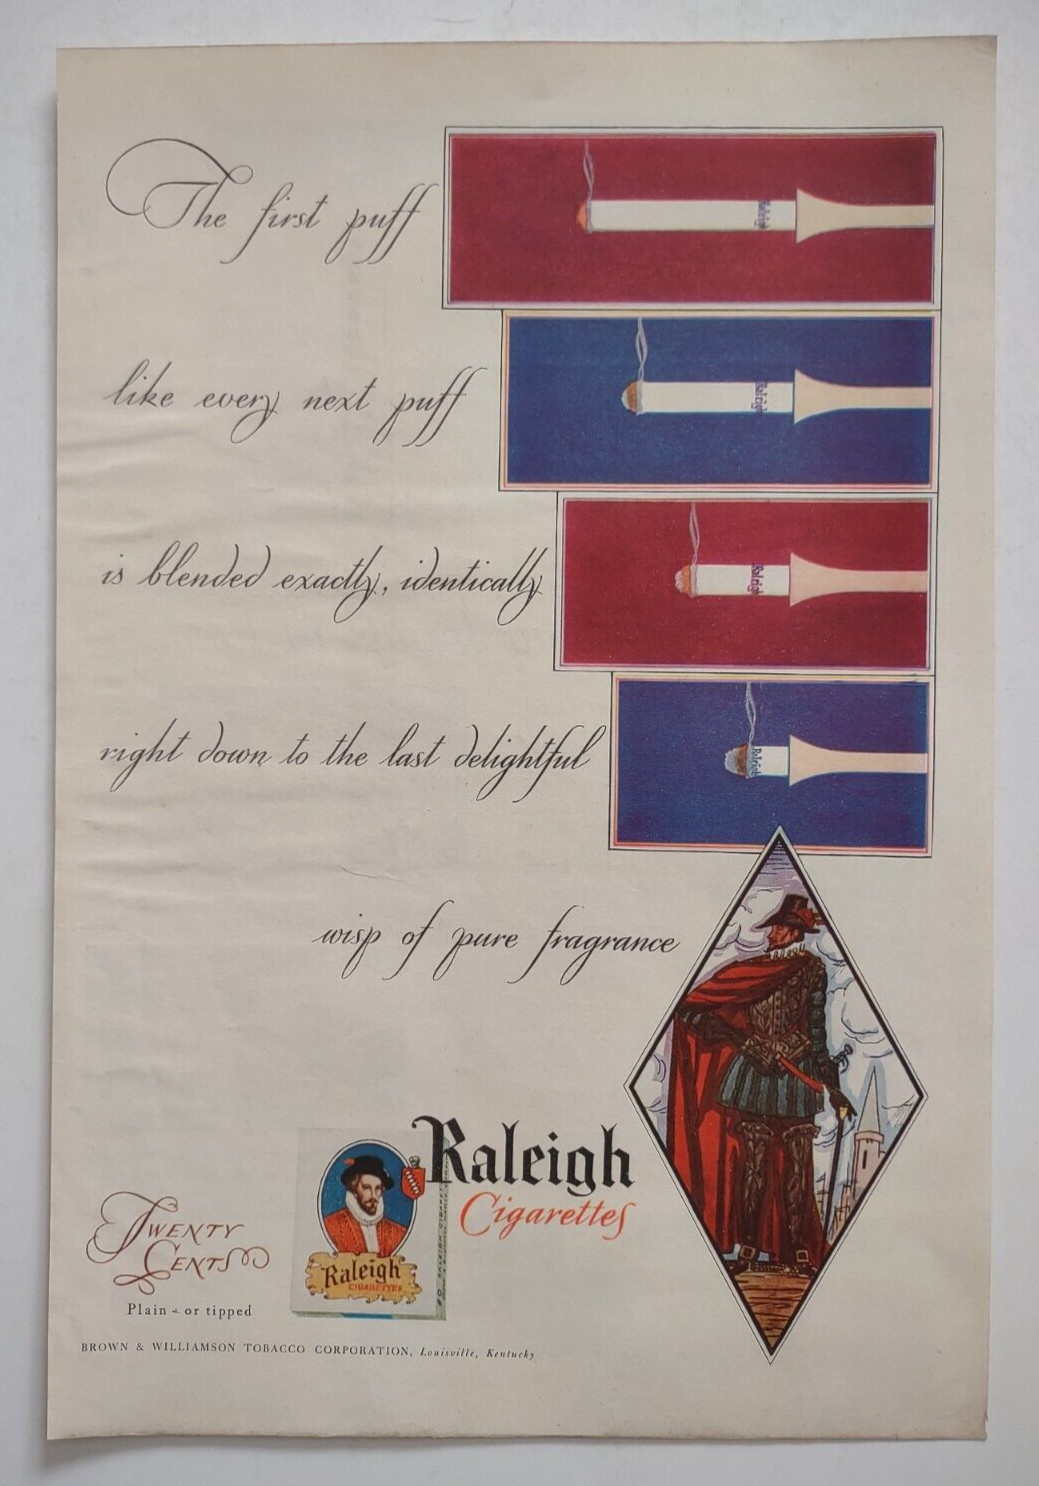 The first puff
Raleigh
like every next puff
Raleigh
is blended exactly, identically
Raleigh
right down to the last delightful
Raleigh
wisp of pure fragrance
Raleigh
Cigarettes
Raleigh
CIGARETTES
TWENTY
CENTS
Plain - or tipped
BROWN & WILLIAMSON TOBACCO CORPORATION, Louisville, Kentucky